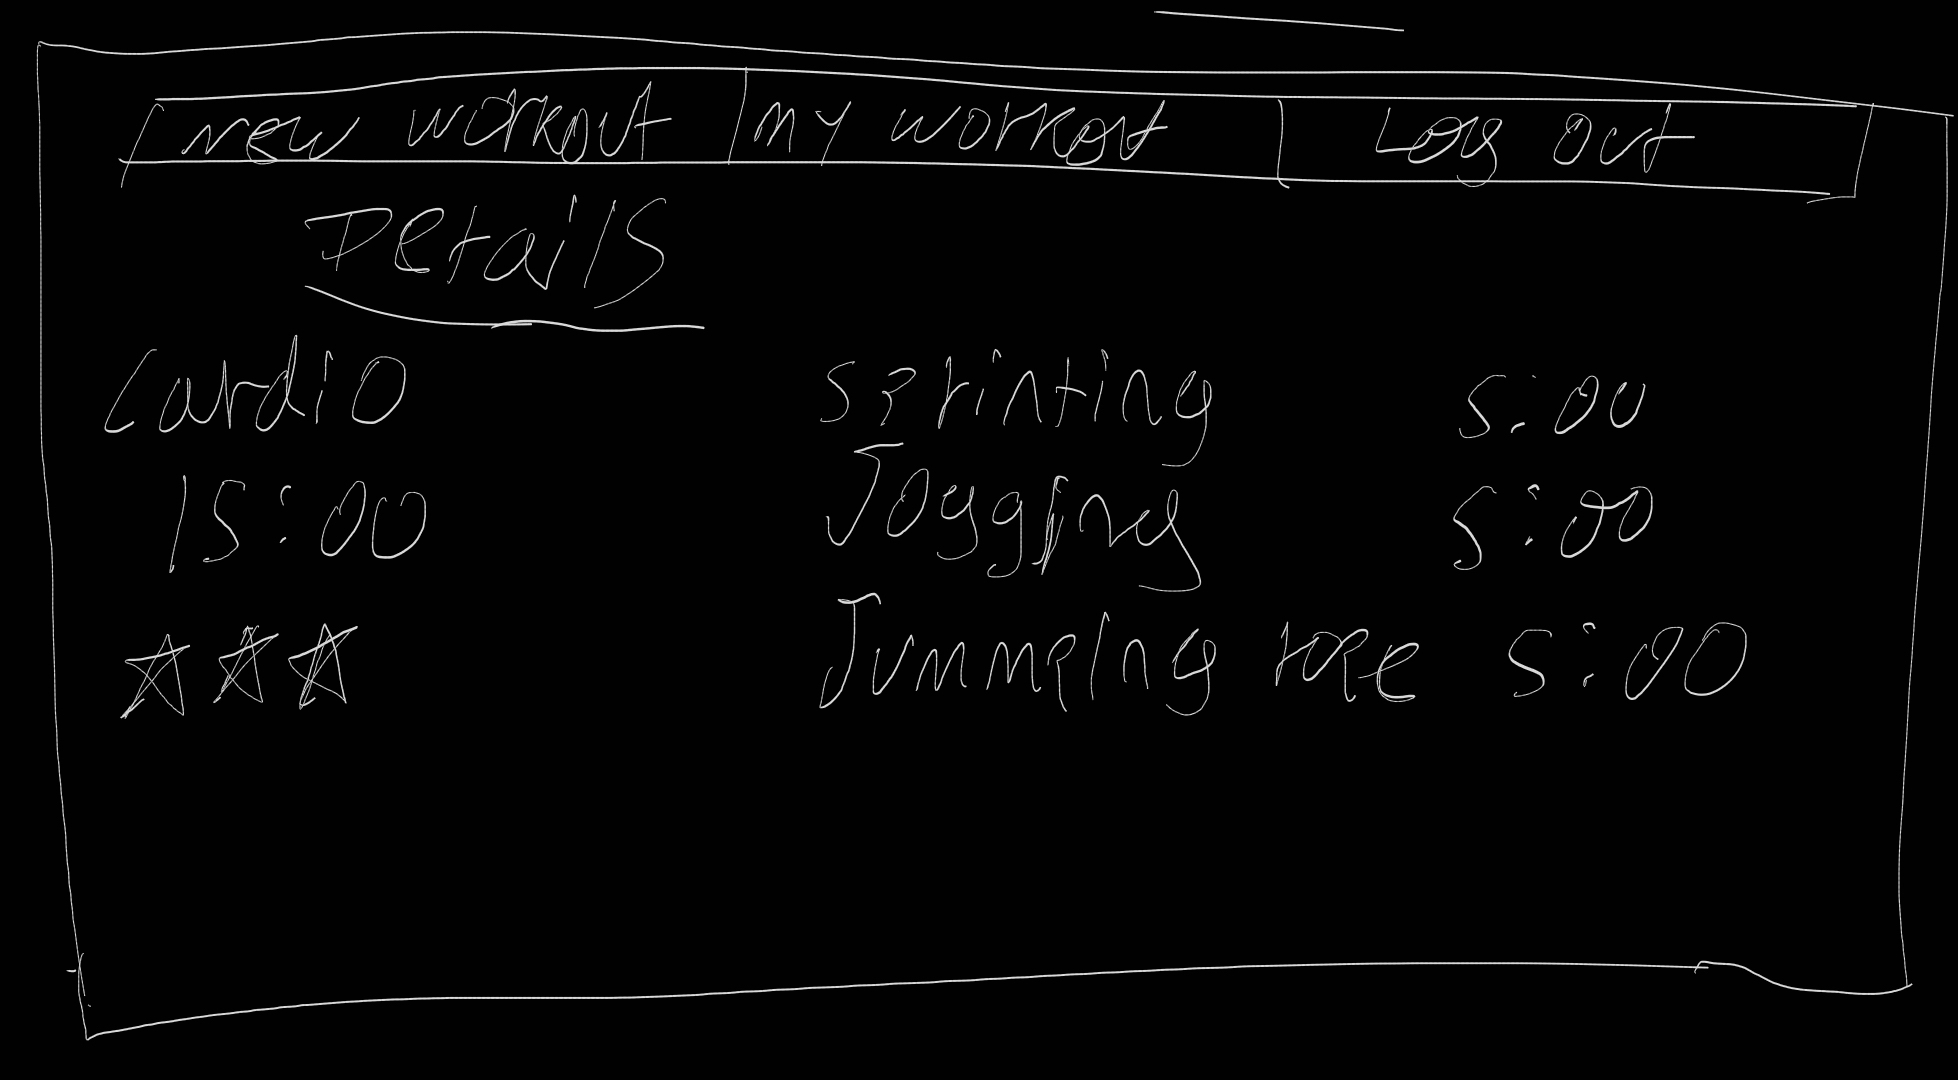 New workout my workout Log out
Details
Cardio
15:00
Sprinting 5:00
Jogging 5:00
Jummping rope 5:00